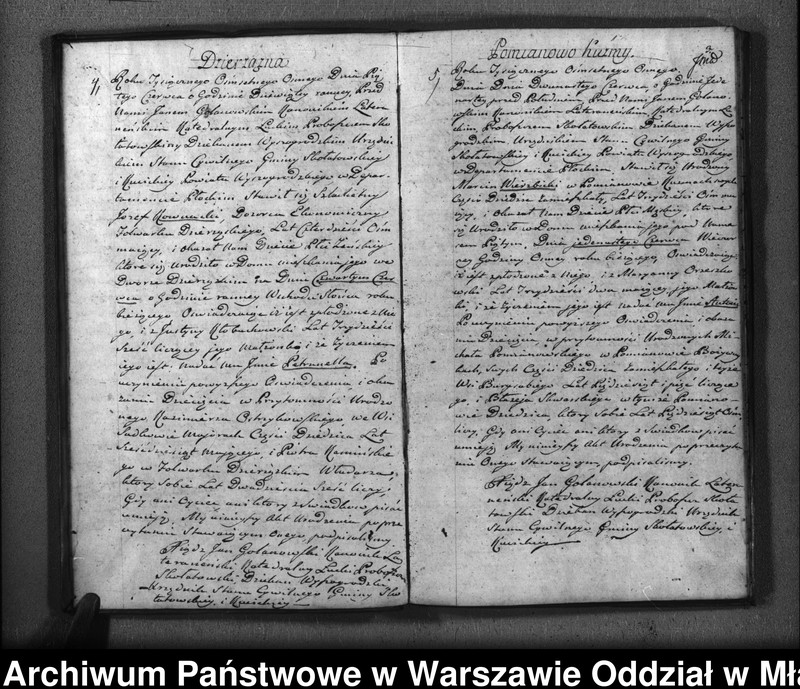 Dzierżązna
4,
Roku Tysiącznego Ośmsetnego Osmego Dnia Pią-
tego Czerwca o Godzinie Dziewiątey ranney Przed
Nami Janem Golanowskim Kanonikiem Latera-
neńskim Katedralnym Luckim Proboszczem Sko-
łatowskim Dziekanem Wyszogrodzkim Urzędni-
kiem Stanu Cywilnego Gminy Skołatowskiey
i Kucickiey Powiatu Wyszogrodzkiego w Depar-
tamencie Płockim Stawił się Szlachetny
Józef Kownacki, Dozorca Ekonomiczny
Folwarku Dzierzęskiego, Lat Czterdzieści Ośm
maiący, i okazał Nam Dziecie Płci Żeńskiey
które się urodziło w Domu mieszkania jego we
Dworze Dzierzęskim na Dniu Czwartym Czer-
wca o Godzinie ranney Wschodu Słońca roku
bieżącego Oświadczaiąc iż jest spłodzone z Nie-
go, i z Justyny Kłobuchowski Lat Trzydzieści
Sześć liczącey jego Małżonki i że życzeniem
jego jest, nadać mu Jmie Petrunella. Po
uczynieniu powyższego Oświadczenia i oka-
zaniu Dziecięcia w Przytomności Urodzo-
nego Kazimierza Ostrzykowskiego, we Wsi
Sadkowie Części Dziedzica Lat
Sześćdziesiąt maiącego, i Piotra Kamińskie-
go w Folwarku Dzierzęskim Włodarza,
który sobie Lat Dwadzieścia Sześć liczy,
Gdy ani Oyciec ani który z Swiadków pisać
umieją. My ninieyszy Akt Urodzenia poprze-
czytaniu Stawaiącym Onego, podpisaliśmy
Xiądz Jan Golanowski Kanonik La-
teraneński Katedralny Lucki Proboszcz
Skołatowski, Dziekan Wyszogrodzki,
Urzędnik Stanu Cywilnego Gminy Sko-
łatowskiey i Kucickiey
Pomianowo Kuźmy.
5,
Roku Tysiącznego Ośmsetnego Osmego,
Dnia Dwunastego Czerwca o Godzinie Jede-
nastey przed Południem, Przed Nami Janem Golano-
wskim Kanonikiem Lateraneńskim Katedralnym Lu-
ckim, Proboszczem Skołatowskim Dziekanem Wyszo-
grodzkim Urzędnikiem Stanu Cywilnego Gminy
Skołatowskiey i Kucickiey Powiatu Wyszogrodzkiego
w Departamencie Płockim. Stawił się Urodzony
Marcin Wierzbicki w Pomianowie Kuzmach
Części Dziedzic zamieszkały, Lat Trzydzieści Ośm ma-
iący, i okazał Nam Dziecie Płci Męskiey, które
się Urodziło w Domu mieszkania jego pod Nume-
rem Piątym. Dnia jedenastego Czerwca Wieczor-
ney Godziny Osmey roku bieżącego Oświadczaiąc,
iż jest spłodzone z Niego, i z Maryanny Orzeszko-
wski Lat Trzydzieści dwa maiącey, jego Małżon-
ki, i że życzeniem jego jest nadać mu Jmie Antoni
Po uczynieniu powyższego Oświadczenia i okaza-
niu Dziecięcia, w przytomności Urodzonych Mi-
chała Pomianowskiego w Pomianowie
Części Dziedzica zamieszkałego i teyże
Wsi Lat Pięćdziesiąt i pięć liczące-
go, i Błażeja w teyże Pomiano-
wie Dziedzica, który Sobie Lat Pięćdziesiąt Ośm
liczy, Gdy ani Oyciec ani który z Swiadków pisać
umieją. My ninieyszy Akt Urodzenia poprzeczyta-
niu Onego Stawaiącym, podpisaliśmy.
Xiądz Jan Golanowski Kanonik Latera-
neński Katedralny Lucki Proboszcz Skoła-
towski, Dziekan Wyszogrodzki Urzędnik
Stanu Cywilnego Gminy Skołatowskiey i
Kucickiey
Archiwum Państwowe w Warszawie Oddział w Mła